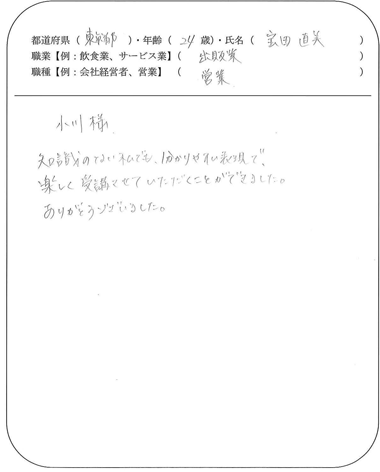 都道府県（東京都）・年齢（24歳）・氏名（宝田 直美）
職業【例：飲食業、サービス業】（出版業）
職種【例：会社経営者、営業】（営業）
小川様
知識のない私でも、分かりやすい表現で、
楽しく受講させていただくことができました。
ありがとうございました。